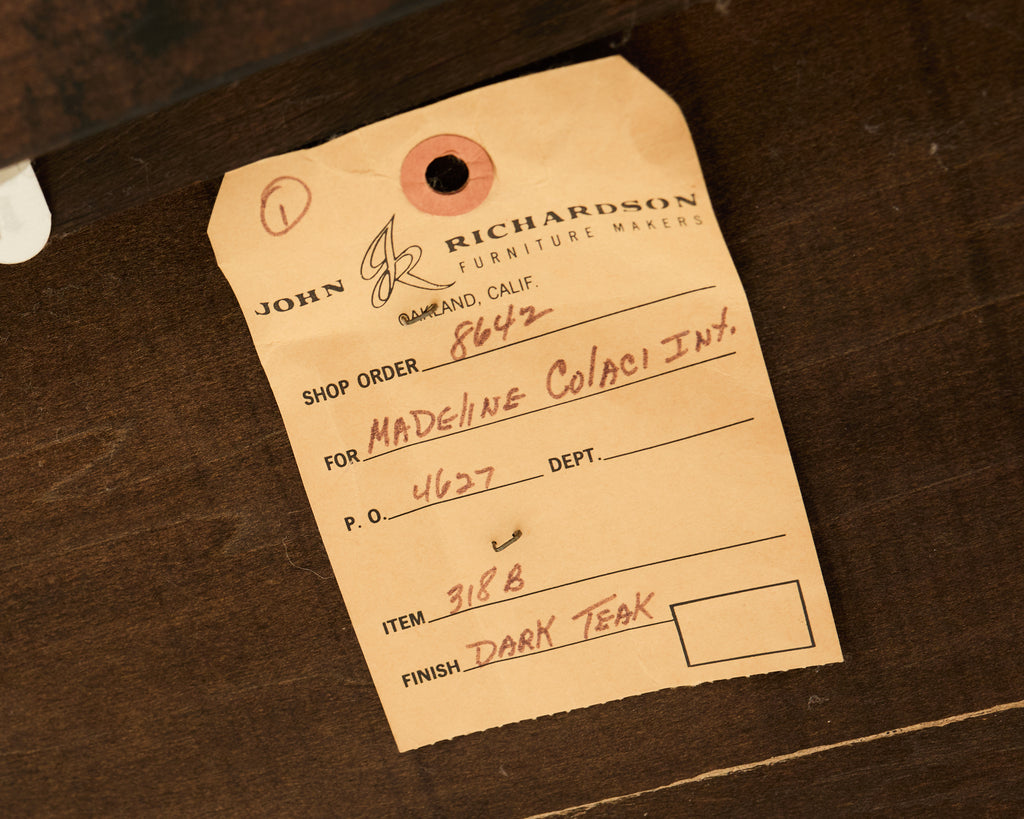 1
JOHN JR RICHARDSON
FURNITURE MAKERS
OAKLAND, CALIF.
SHOP ORDER 8642
FOR MADELINE COLACI INT.
P. O. 4627 DEPT.
ITEM 318 B
FINISH DARK TEAK